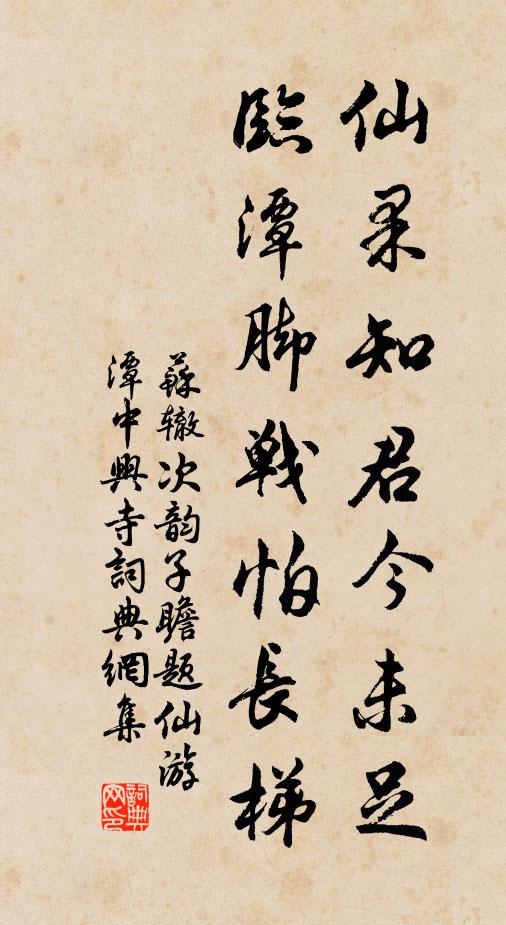 仙果知君今未足
臨潭脚戰怕長梯
蘇辙次韵子瞻题仙游
潭中興寺詞典網集
詞典网印